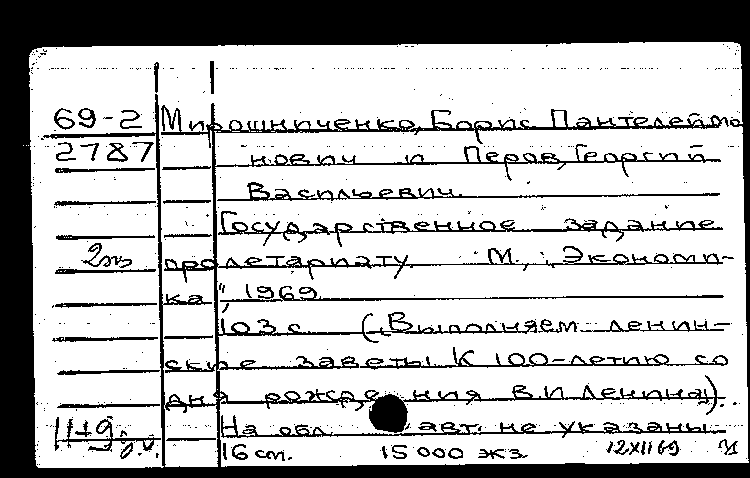 69-2 Мирошниченко, Борис Пантелеймо
2787 нович и Перов, Георгий
Васильевич.
Государственное задание
2 пролетариату. М., „Экономи-
ка", 1969
103 с. („Выполняем ленин-
ские заветы. К 100-летию со
дня рождения В.И. Ленина").
На обл. авт. не указаны.
16 см. 15 000 экз. 12 XII 69